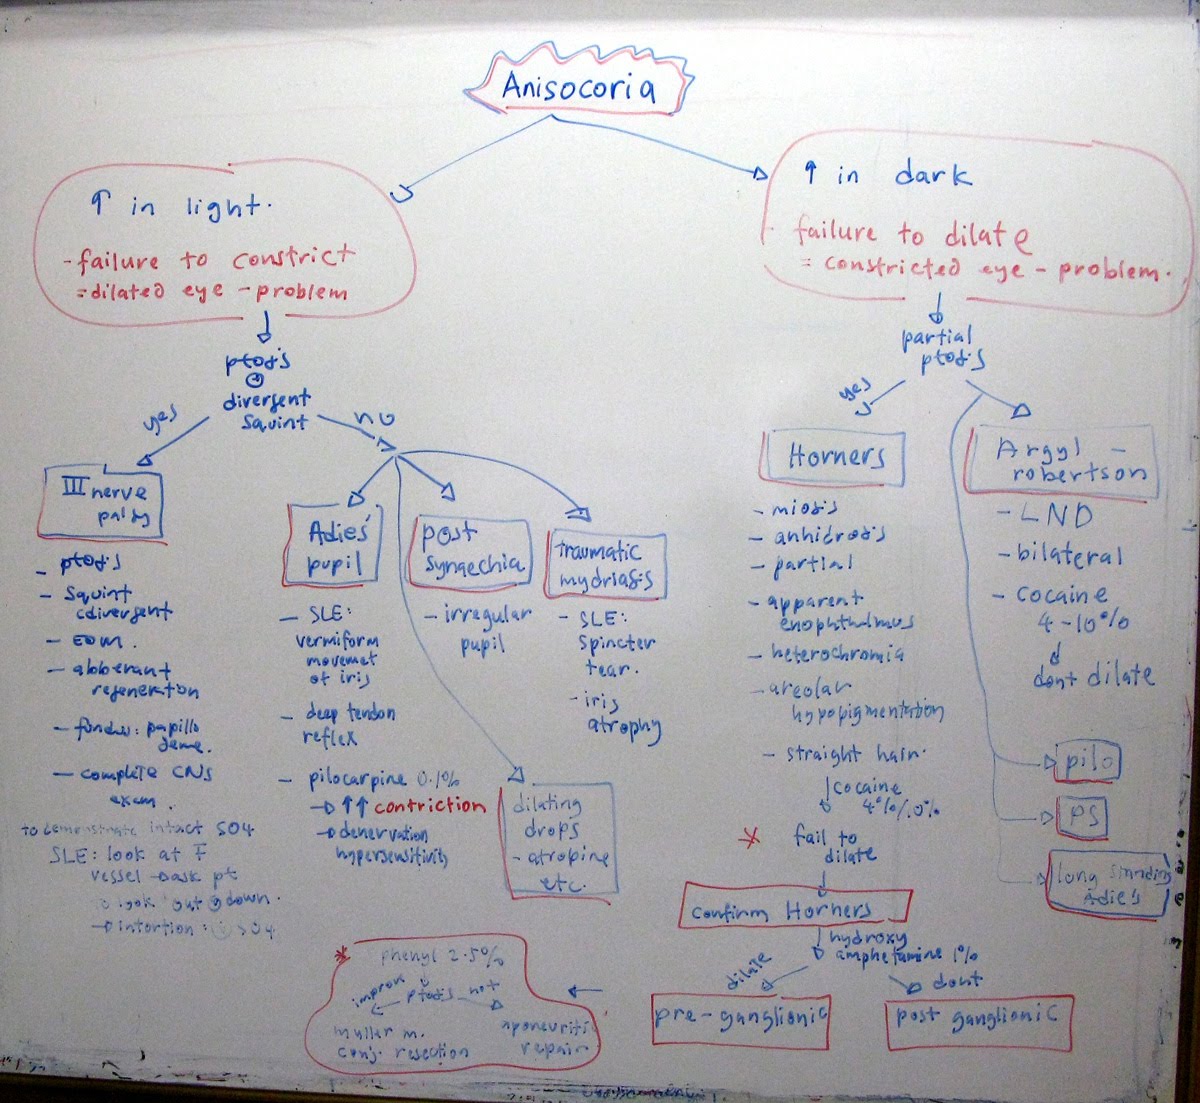 Anisocoria
↑ in light.
- failure to constrict
= dilated eye - problem
ptosis
divergent
squint
yes
no
III nerve
palsy
- ptosis
- squint
(divergent
- EOM.
- abberant
regeneration
- fundus: papillo
deme.
- complete CNS
exam.
to demonstrate intact SO4
SLE: look at
vessel → ask pt
look out down.
→ intortion: SO4
Adies'
pupil
- SLE:
vermiform
movemet
of iris
- deep tendon
reflex
- pilocarpine 0.1%
→ ↑↑ contriction
→ denervation
hypersensitivity
post
synaechia
- irregular
pupil
traumatic
mydriasis
- SLE:
spincter
tear.
- iris
atrophy
dilating
drops
- atropine
etc.
↑ in dark
- failure to dilate
= constricted eye - problem.
partial
ptosis
yes
Horners
- miosis
- anhidrosis
- partial
- apparent
enophthalmus
- heterochromia
- areolar
hypopigmentation
- straight hair.
cocaine
fail to
dilate
confirm Horners
hydroxy
amphetamine 1%
dilate
dont
pre-ganglionic
post ganglionic
Argyl -
robertson
- LND
- bilateral
- cocaine
4-10%
dont dilate
pilo
PS
long standing
Adie's
phenyl 2.5%
improv
ptosis
not
muller m.
conj. resection
repair